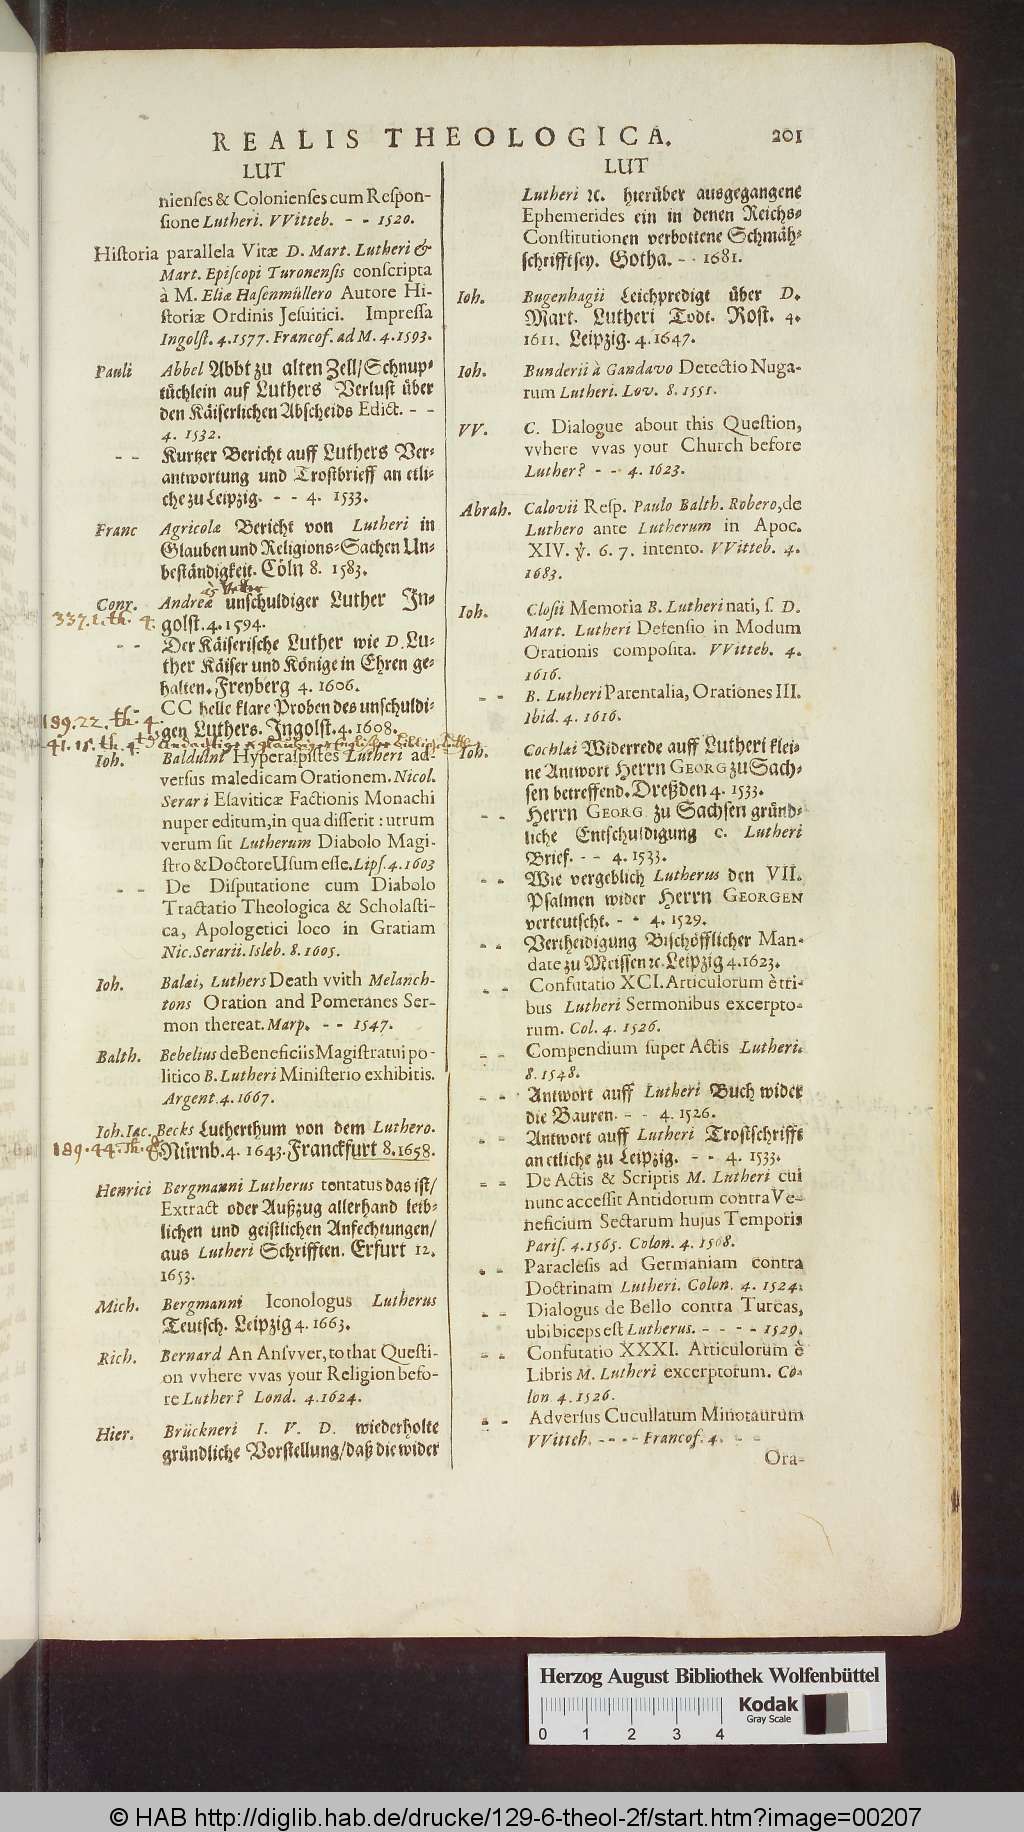 REALIS THEOLOGICA. 201
LUT
nienſes & Colonienſes cum Reſpon-
ſione Lutheri. VVitteb. - - 1520.
Hiſtoria parallela Vitæ D. Mart. Lutheri &
Mart. Epiſcopi Turonenſis conſcripta
à M. Eliæ Haſenmüllero Autore Hi-
ſtoriæ Ordinis Jeſuitici. Impreſſa
Ingolſt. 4. 1577. Francof. ad M. 4. 1593.
Pauli Abbel Abbt zu alten Zell/Schnup-
tüchlein auf Luthers Verluſt über
den Käiſerlichen Abſcheids Edict. - -
4. 1532.
- - Kurtzer Bericht auff Luthers Ver-
antwortung und Troſtbrieff an etli-
che zu Leipzig. - - 4. 1533.
Franc Agricolæ Bericht von Lutheri in
Glauben und Religions-Sachen Un-
beſtändigkeit. Cöln 8. 1583.
Conr. Andreæ unſchuldiger Luther In-
337. 1. th. 4. golſt. 4. 1594.
- - Der Käiſeriſche Luther wie D. Lu-
ther Käiſer und Könige in Ehren ge-
halten. Freyberg 4. 1606.
- CC helle klare Proben des unſchuldi-
189. 22. th. 4. gen Luthers. Ingolſt. 4. 1608.
41. 15. th. 4.
Ioh. Balduini Hyperaſpiſtes Lutheri ad-
verſus maledicam Orationem. Nicol.
Serari Eſaviticæ Factionis Monachi
nuper editum, in qua diſſerit: utrum
verum ſit Lutherum Diabolo Magi-
ſtro & Doctore Uſum eſſe. Lipſ. 4. 1603
- - De Diſputatione cum Diabolo
Tractatio Theologica & Scholaſti-
ca, Apologetici loco in Gratiam
Nic. Serarii. Isleb. 8. 1605.
Ioh. Balæi, Luthers Death vvith Melanch-
tons Oration and Pomeranes Ser-
mon thereat. Marp. - - 1547.
Balth. Bebelius de Beneficiis Magiſtratui po-
litico B. Lutheri Miniſterio exhibitis.
Argent. 4. 1667.
Ioh. Iac. Becks Lutherthum von dem Luthero.
189. 44. Th. 8. Nürnb. 4. 1643. Franckfurt 8. 1658.
Henrici Bergmanni Lutherus tentatus das iſt/
Extract oder Außzug allerhand leib-
lichen und geiſtlichen Anfechtungen/
aus Lutheri Schrifften. Erfurt 12.
1653.
Mich. Bergmanni Iconologus Lutherus
Teutſch. Leipzig 4. 1663.
Rich. Bernard An Anſvver, to that Queſti-
on vvhere vvas your Religion befo-
re Luther? Lond. 4. 1624.
Hier. Brückneri I. V. D. wiederholte
gründliche Vorſtellung/daß die wider
LUT
Lutheri ꝛc. hierüber ausgegangene
Ephemerides ein in denen Reichs-
Conſtitutionen verbottene Schmäh-
ſchrifft ſey. Gotha. - - 1681.
Ioh. Bugenhagii Leichpredigt über D.
Mart. Lutheri Todt. Roſt. 4.
1611. Leipzig. 4. 1647.
Ioh. Bunderii à Gandavo Detectio Nuga-
rum Lutheri. Lov. 8. 1551.
VV. C. Dialogue about this Queſtion,
vvhere vvas your Church before
Luther? - - 4. 1623.
Abrah. Calovii Reſp. Paulo Balth. Robero, de
Luthero ante Lutherum in Apoc.
XIV. ℣. 6. 7. intento. VVitteb. 4.
1683.
Ioh. Cloſii Memoria B. Lutheri nati, ſ. D.
Mart. Lutheri Defenſio in Modum
Orationis compoſita. VVitteb. 4.
1616.
- - B. Lutheri Parentalia, Orationes III.
Ibid. 4. 1616.
Ioh. Cochlæi Widerrede auff Lutheri klei-
ne Antwort Herrn GEORG zu Sach-
ſen betreffend. Dreßden 4. 1533.
- - Herrn GEORG. zu Sachſen gründ-
liche Entſchuldigung c. Lutheri
Brief. - - 4. 1533.
- - Wie vergeblich Lutherus den VII.
Pſalmen wider Herrn GEORGEN
verteutſcht. - - 4. 1529.
- - Vertheidigung Biſchöfflicher Man-
date zu Meiſſen ꝛc. Leipzig 4. 1623.
- - Confutatio XCI. Articulorum è tri-
bus Lutheri Sermonibus excerpto-
rum. Col. 4. 1526.
- - Compendium ſuper Actis Lutheri.
8. 1548.
- - Antwort auff Lutheri Buch wider
die Bauren. - - 4. 1526.
- - Antwort auff Lutheri Troſtſchrifft
an etliche zu Leipzig. - - 4. 1533.
- - De Actis & Scriptis M. Lutheri cui
nunc acceſſit Antidotum contra Ve-
neficium Sectarum hujus Temporis
Pariſ. 4. 1565. Colon. 4. 1508.
- - Paracleſis ad Germaniam contra
Doctrinam Lutheri. Colon. 4. 1524.
- - Dialogus de Bello contra Turcas,
ubi biceps eſt Lutherus. - - - - 1529.
- - Confutatio XXXI. Articulorum è
Libris M. Lutheri excerptorum. Co-
lon 4. 1526.
- - Adverſus Cucullatum Minotaurum
VVitteb. - - - - Francof. 4. - -
Ora-
Herzog August Bibliothek Wolfenbüttel
0 1 2 3 4
Kodak
Gray Scale
© HAB http://diglib.hab.de/drucke/129-6-theol-2f/start.htm?image=00207